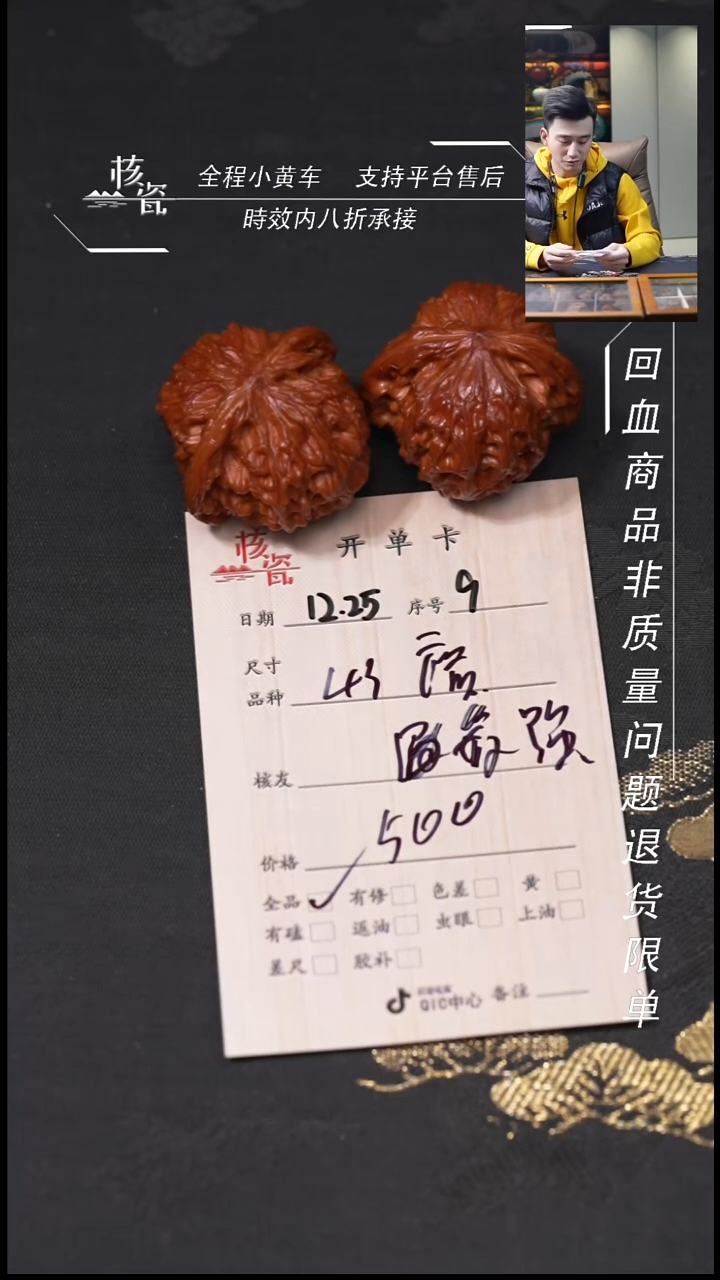 核瓷
全程小黄车 支持平台售后
時效内八折承接
回血商品非质量问题退货限单
核瓷 开单卡
日期 12.25 序号 9
尺寸
品种 43
核友
价格 500
全品 ✓ 有修 色差 黄
有磕 返油 虫眼 上油
差尺 胶补
QIC中心 备注